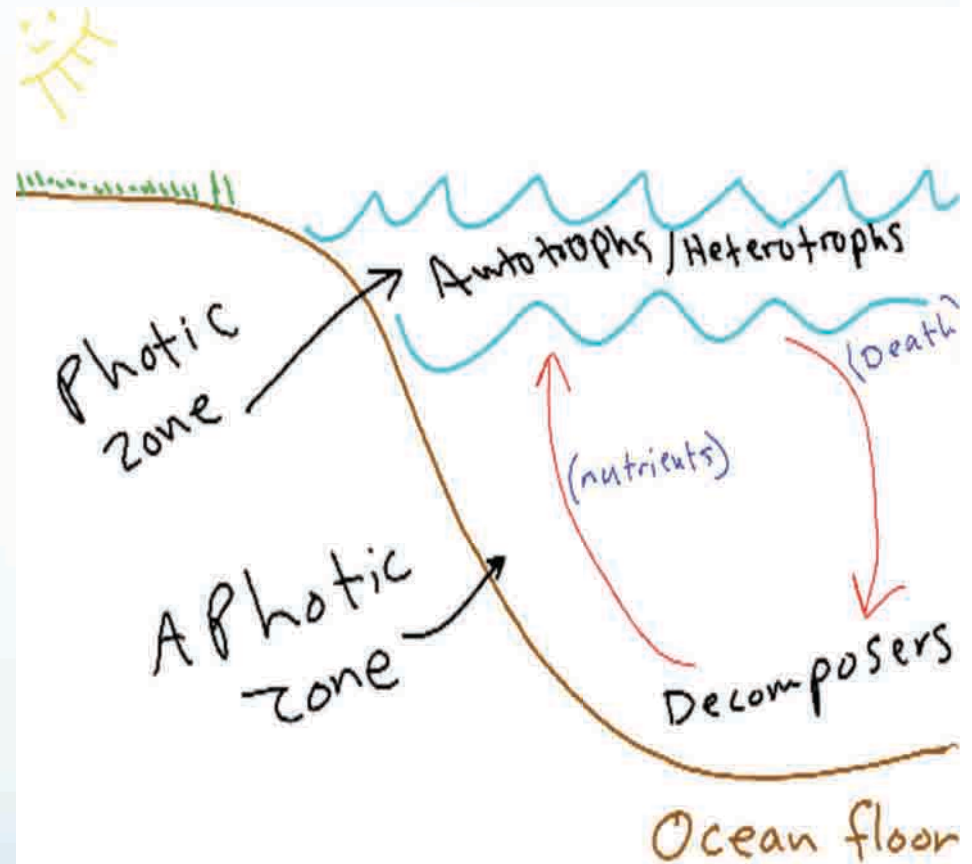 Autotrophs/Heterotrophs
Photic
zone
(Death)
(nutrients)
APhotic
zone
Decomposers
Ocean floor